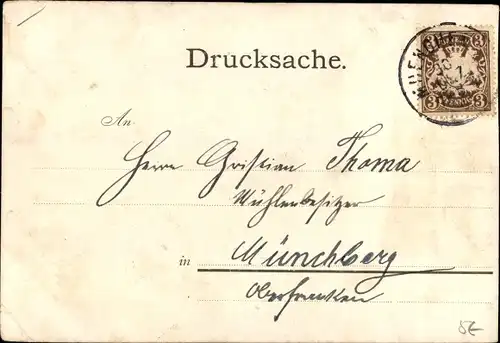 Drucksache.
MUENCHE
3 3
PFENNIG
An
Herrn Christian Thoma
Mühlenbesitzer
in Münchberg
Oberfranken